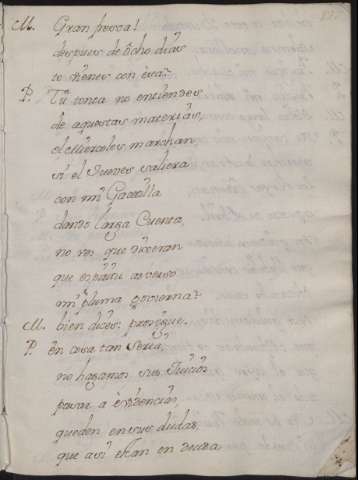 M. Gran fresca!
despues de ocho dias
te vienes con esa?
P. Tu tonta no entiendes
de aquestas materias,
el Miercoles marchan
si el Jueves saliera
con mi Gacetilla
dando larga Cuenta,
no ves que dixeran
que espiritu adverso
mi pluma govierna?
M. bien dices: prosigue.
P. en cosa tan seria,
no hagamos sus Juicios
pasar a evidencias,
queden en sus dudas,
que asi estan en